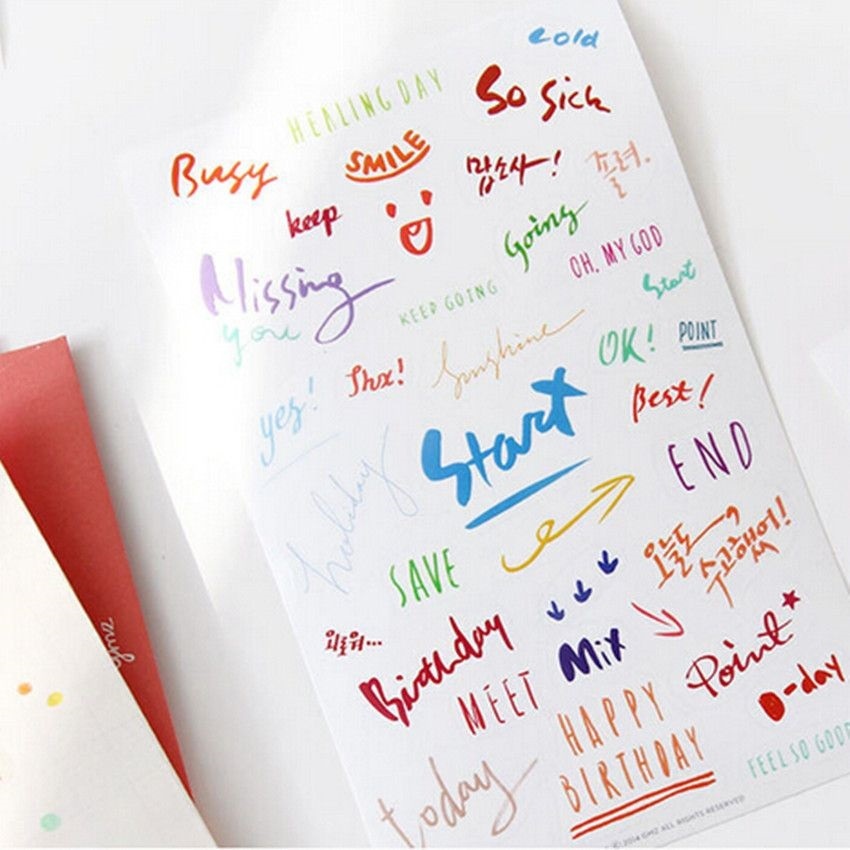 cold
HEALING DAY
So Sick
Busy
SMILE
맙소사!
졸려.
keep
Going
OH, MY GOD
Missing
you
KEEP GOING
Start
yes!
Thx!
Sunshine
OK!
POINT
Best!
Start
END
holiday
SAVE
오늘도
수고했어!
외로워...
Birthday
Mix
Point
MEET
D-day
HAPPY
BIRTHDAY
today
FEEL SO GOOD
(C) 2014 GMZ ALL RIGHTS RESERVED
gmz